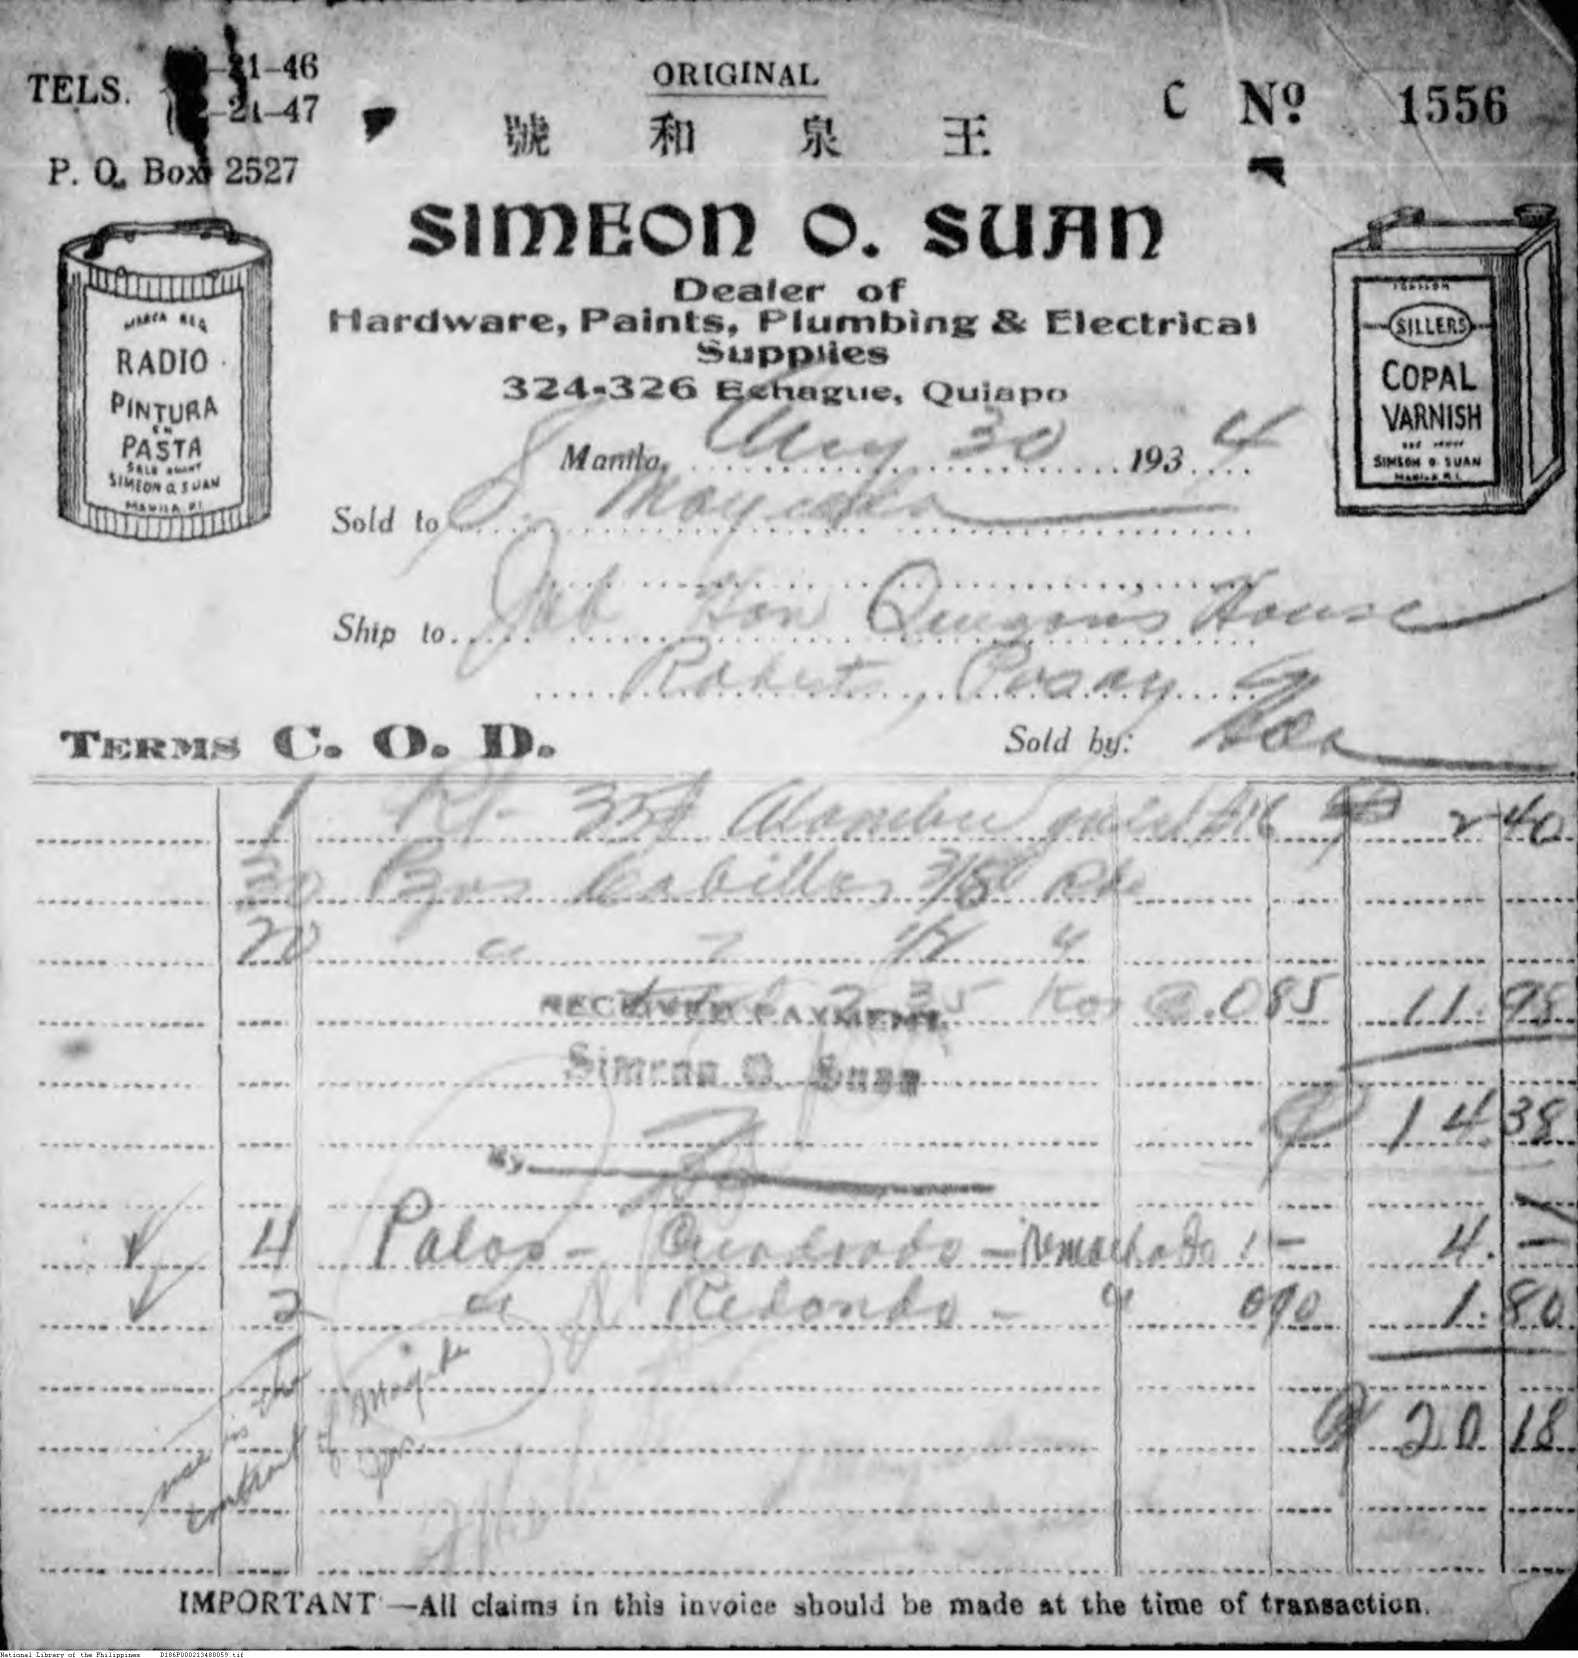 ORIGINAL
TELS. -21-46
2-21-47
C Nº 1556
號 和 泉 王
P. O. Box 2527
SIMEON O. SUAN
Dealer of
Hardware, Paints, Plumbing & Electrical
Supplies
324-326 Echague, Quiapo
MARCA REG
RADIO
PINTURA
EN
PASTA
SALE AGENT
SIMEON O. SUAN
MANILA, P.I.
1 GALLON
SILLERS
COPAL
VARNISH
SIMEON O. SUAN
MANILA P.I.
Manila, May 30 1934
Sold to
Ship to Job Hon Quezon's House
Roberts, Pasay
TERMS C. O. D.
Sold by:
1 Rl- 35# Alambre #16 P 2 40
30 Pzas Cabillas 3/8 Rdo
20 " " 1/2 "
35 Kos @ .085 11.98
RECEIVED PAYMENT
Simeon O. Suan
P 14.38
By
4 Palas - Cuadrado - Remachado 1- 4.-
2 " Redondo - " 090 1.80
P 20 18
use in the
contract of
IMPORTANT—All claims in this invoice should be made at the time of transaction.
National Library of the Philippines D186P000213488059.tif